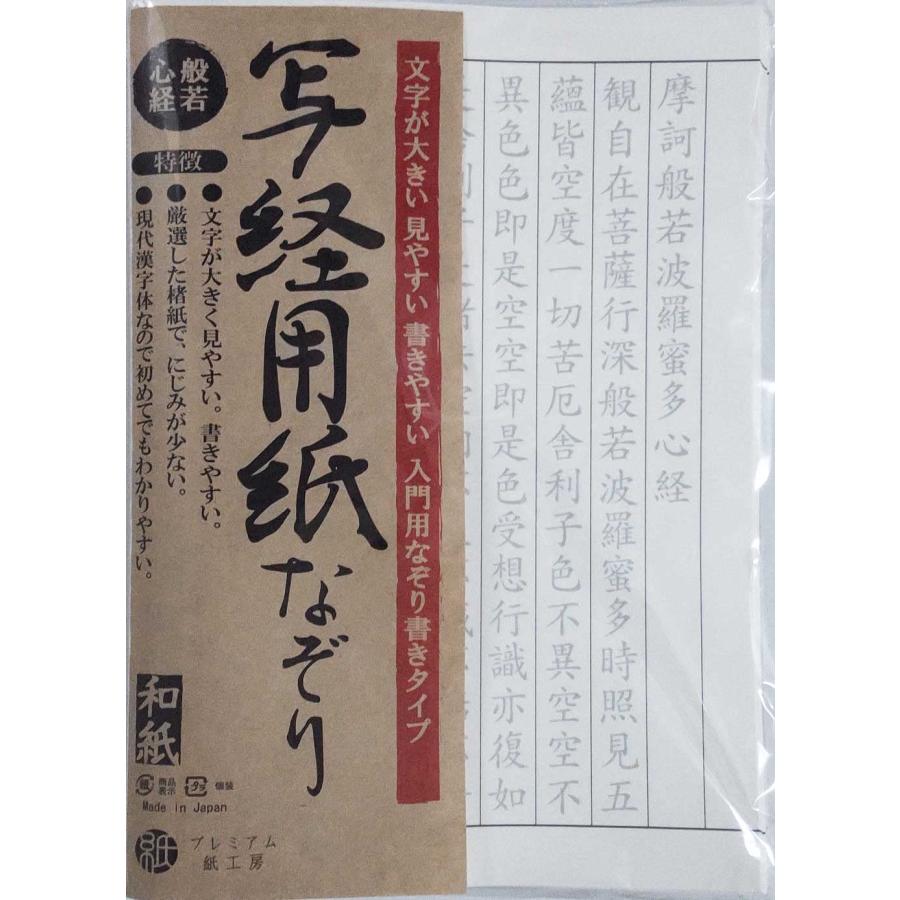 摩訶般若波羅蜜多心経
観自在菩薩行深般若波羅蜜多時照見五
蘊皆空度一切苦厄舎利子色不異空空不
異色色即是空空即是色受想行識亦復如
文字が大きい 見やすい 書きやすい 入門用なぞり書きタイプ
写経用紙なぞり
般若
心経
特徴
●文字が大きく見やすい。書きやすい。
●厳選した楮紙で、にじみが少ない。
●現代漢字体なので初めてでもわかりやすい。
和紙
紙 商品表示 プラ 個装
Made in Japan
紙 プレミアム
紙工房